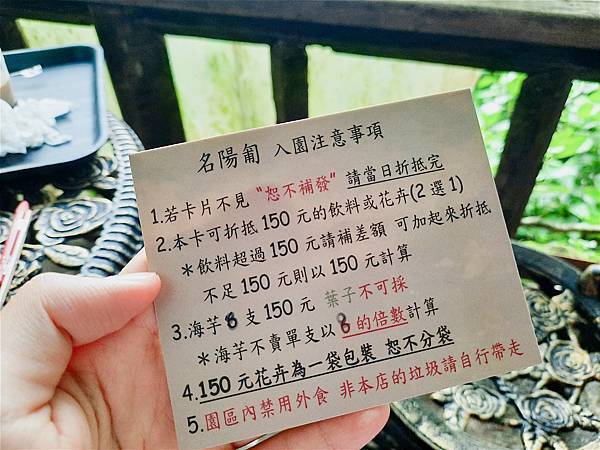 名陽匍 入園注意事項
1.若卡片不見 “恕不補發” 請當日折抵完
2.本卡可折抵 150 元的飲料或花卉(2 選 1)
＊飲料超過 150 元請補差額 可加起來折抵
不足 150 元則以 150 元計算
3.海芋 8 支 150 元 葉子不可採
＊海芋不賣單支以 8 的倍數計算
4.150 元花卉為一袋包裝 恕不分袋
5.園區內禁用外食 非本店的垃圾請自行帶走